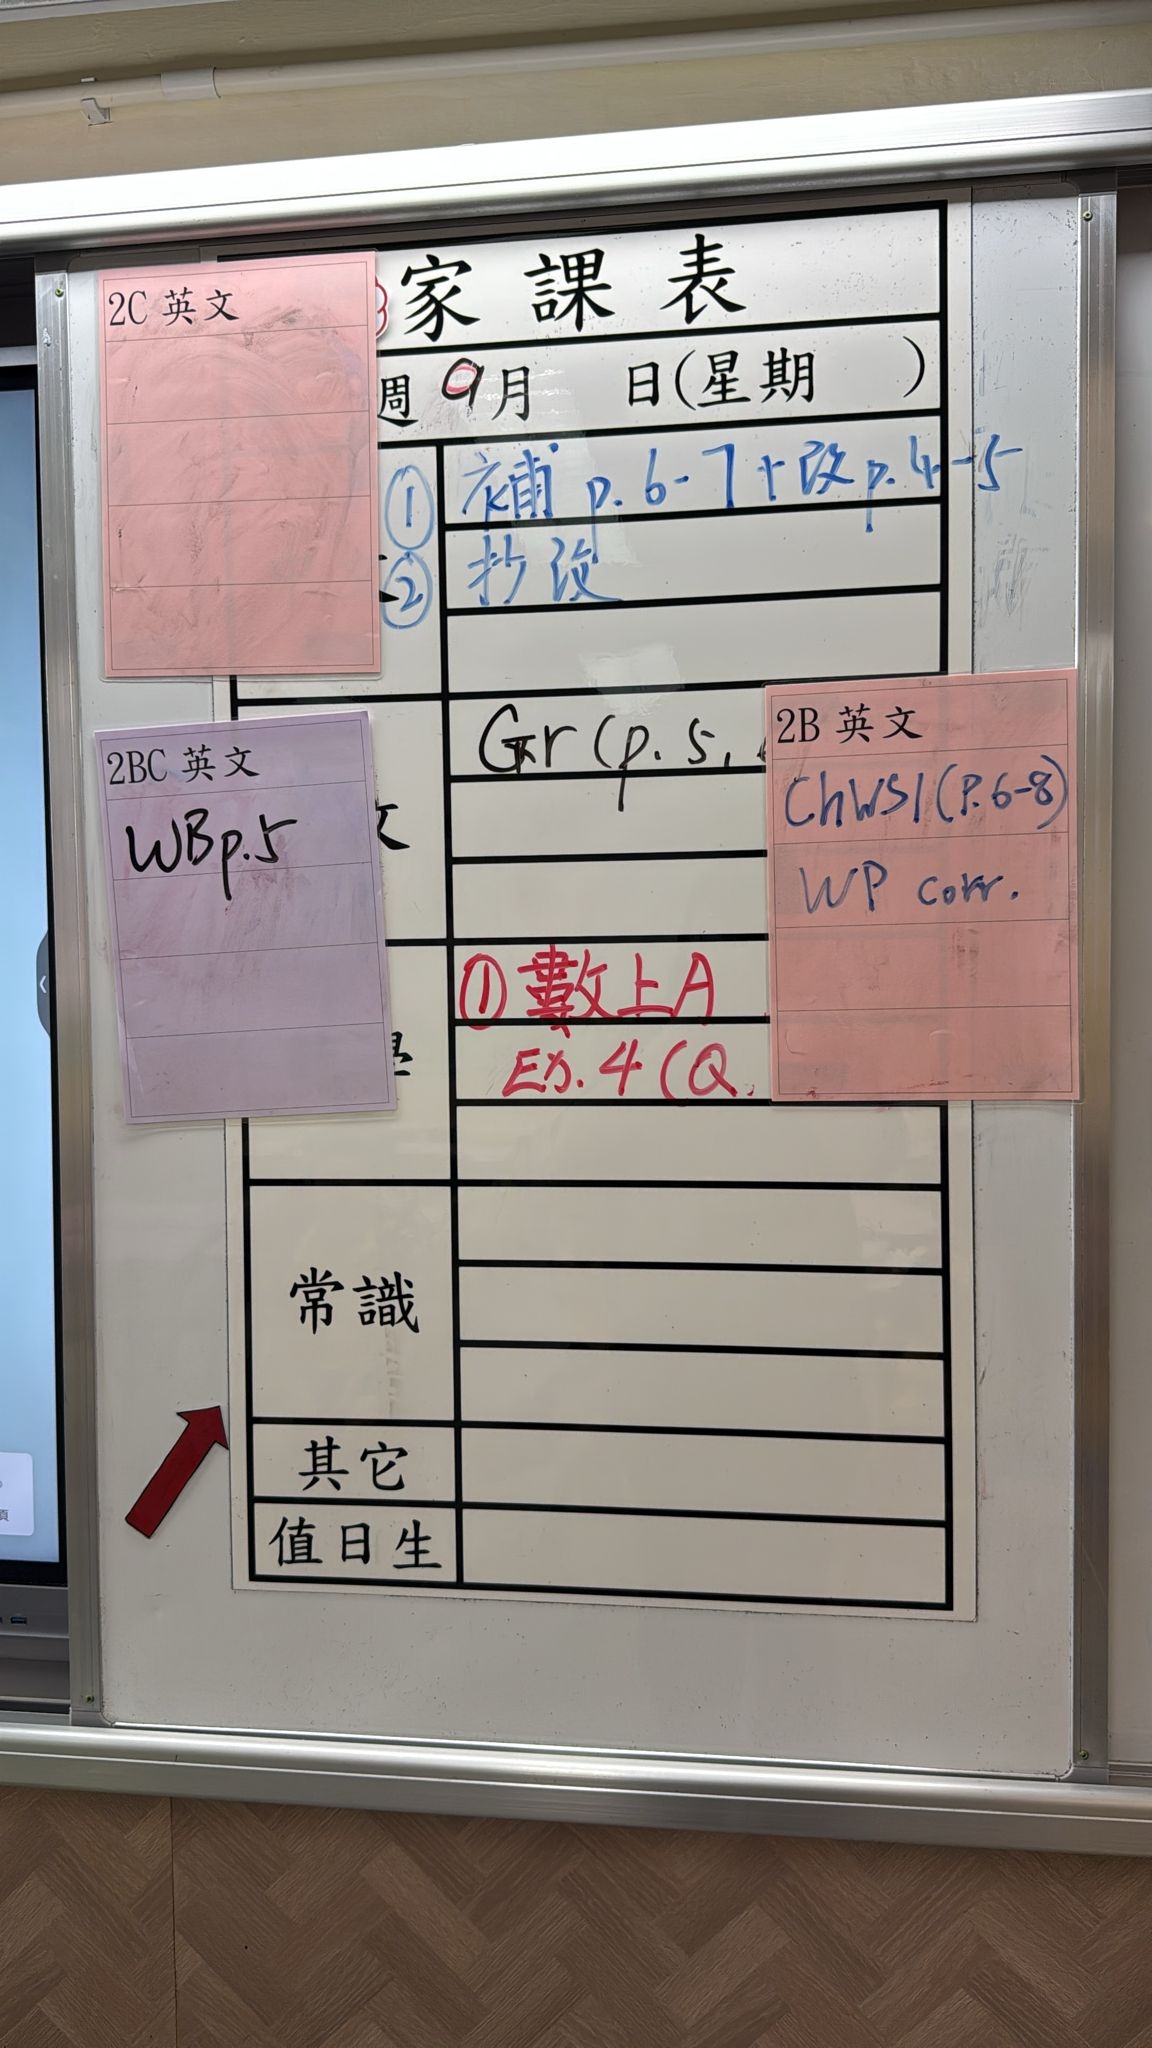 家課表
週 9月 日(星期 )
2C 英文
① 補 p.6-7+改p.4-5
② 抄改
2BC 英文
WBp.5
文
Gr(p.5,
2B 英文
ChWS1(P.6-8)
WP corr.
① 數上A
Ex.4(Q.
常識
其它
值日生